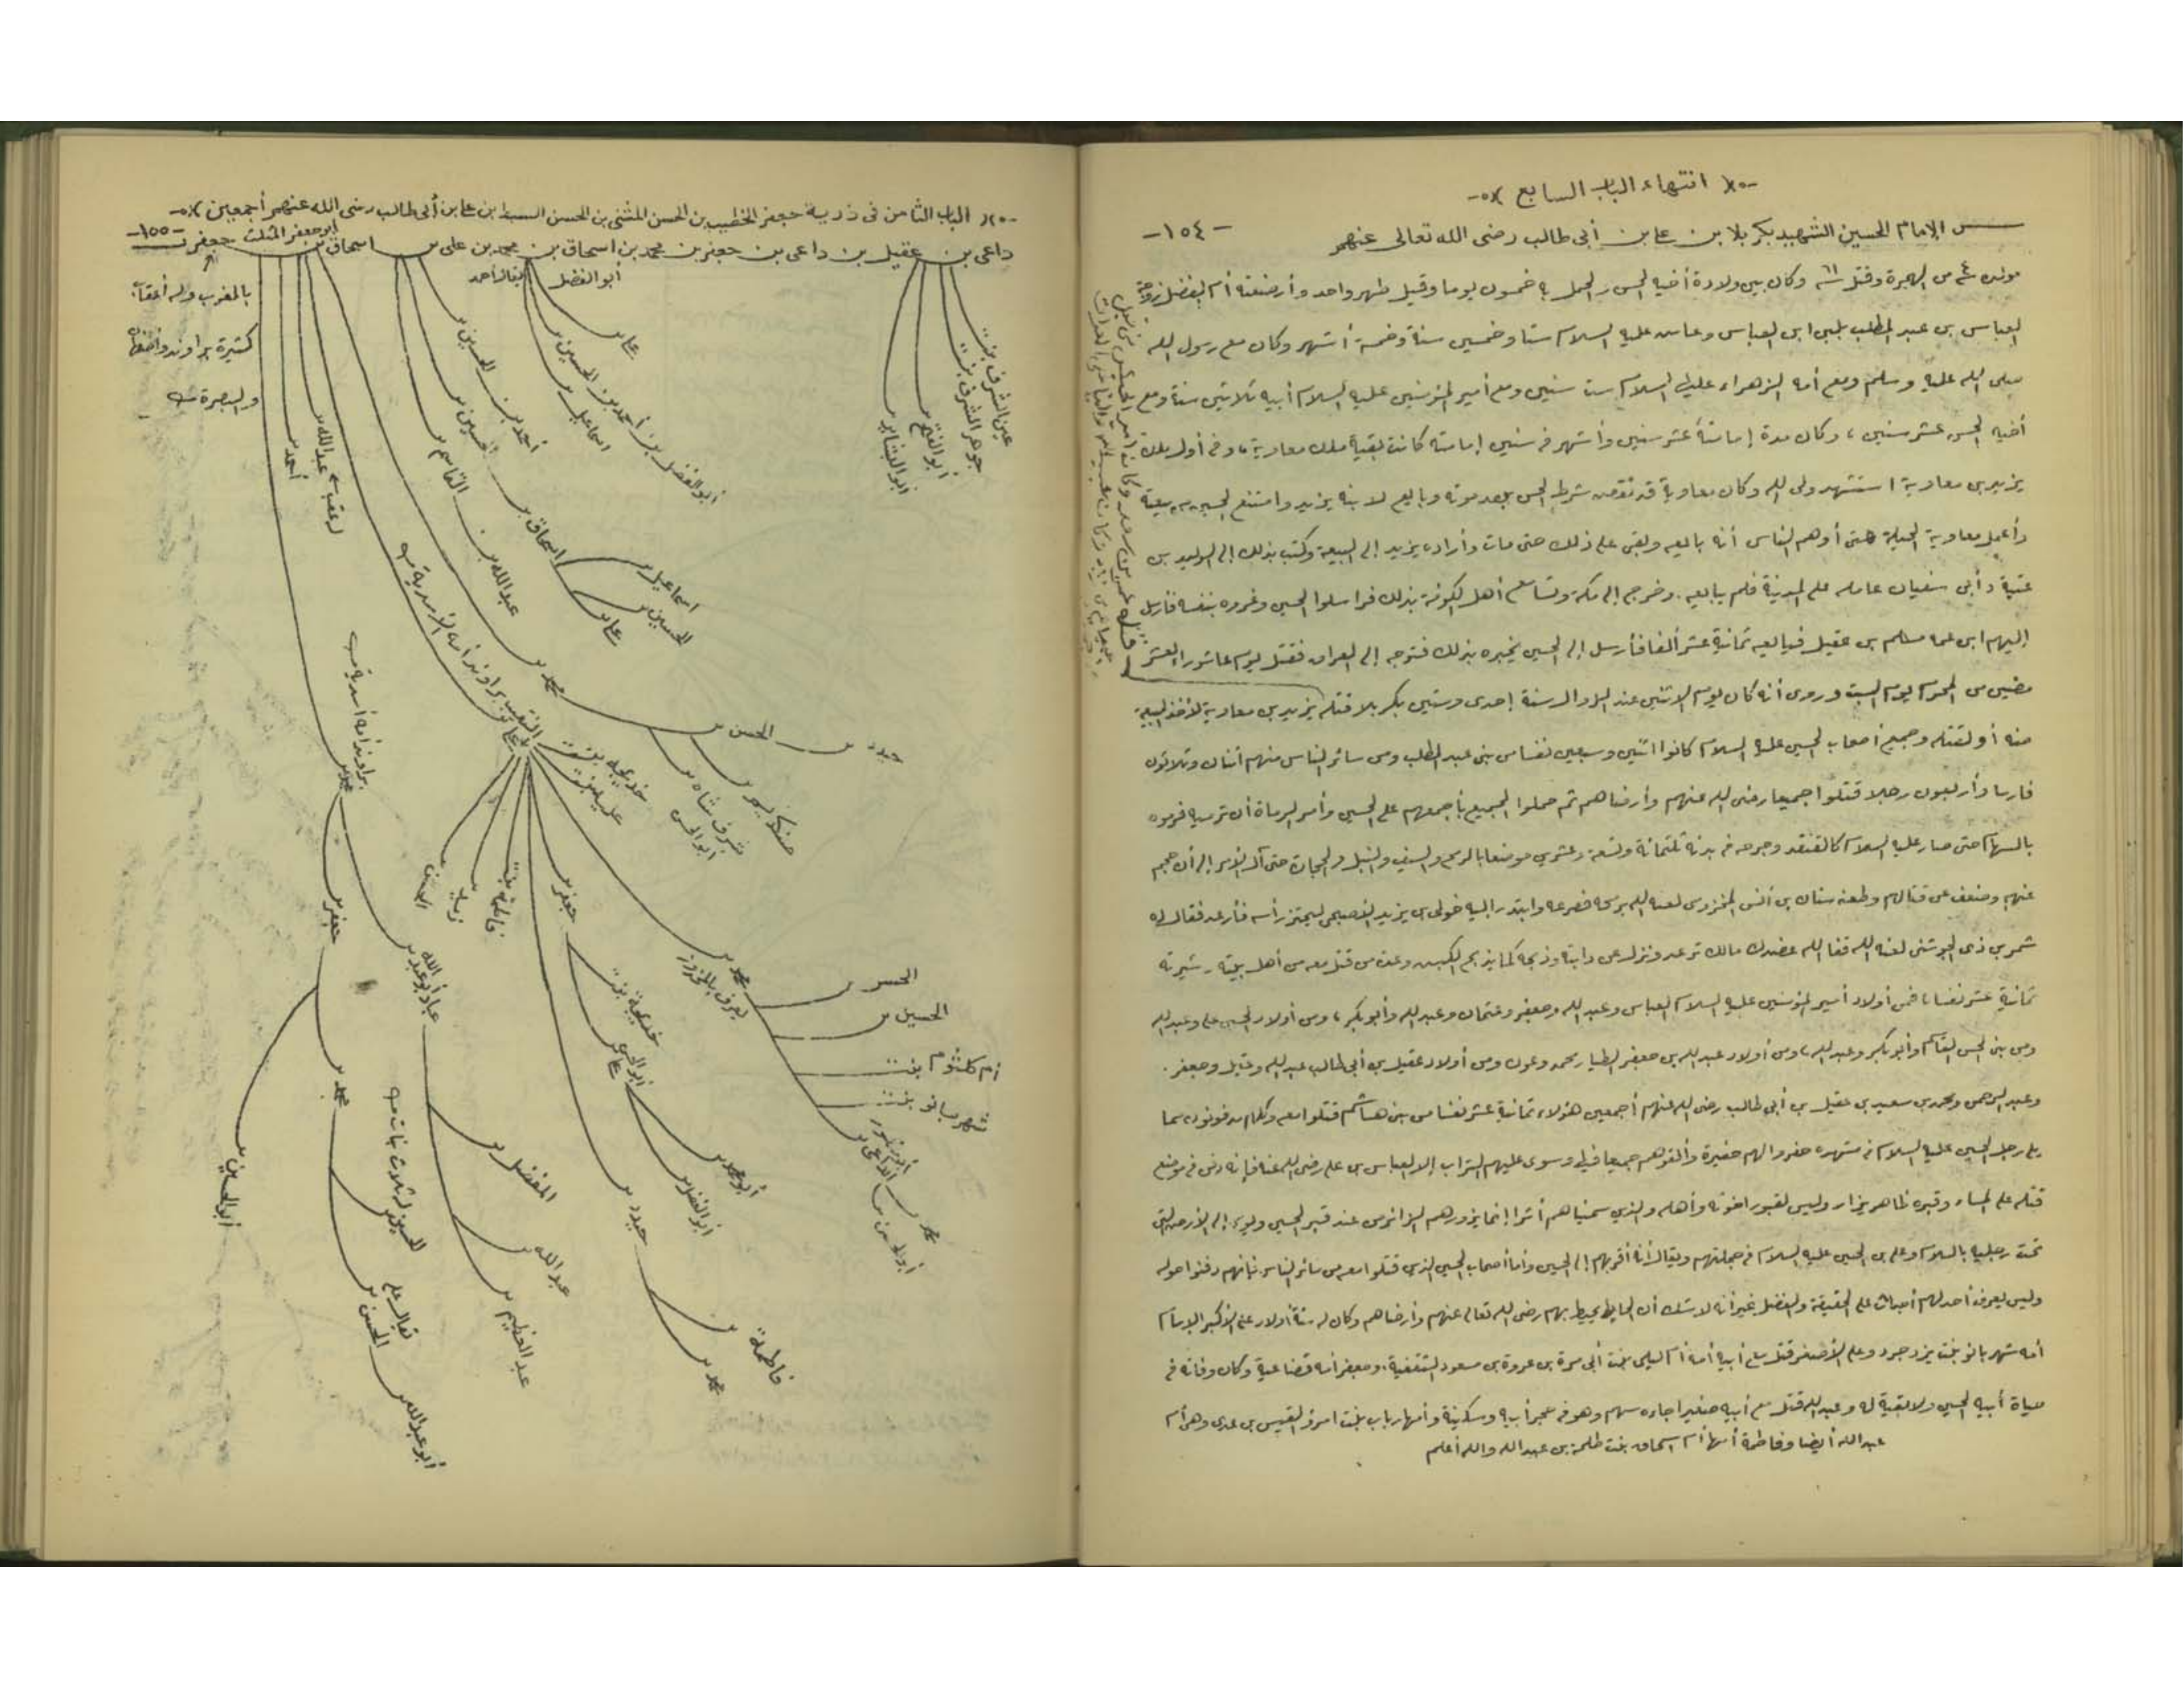 انتهاء الباب السابع
الإمام الحسين الشهيد بكربلا بن علي بن أبي طالب رضى الله تعالى عنهم
-١٥٤-
من الهجرة وقتل ٦١ وكان بين ولادة أخيه الحسن والحمل به خمسون يوما وقيل طهر واحد وأرضعته أم الفضل زوجة
العباس بن عبد المطلب بلبن ابن العباس وعاش عليه السلام ستا وخمسين سنة وخمسة أشهر وكان مع رسول الله
صلى الله عليه وسلم ومع أمه الزهراء عليها السلام ست سنين ومع أمير المؤمنين عليه السلام أبيه ثلاثين سنة ومع
أخيه الحسن عشر سنين، وكان مدة إمامته عشر سنين وأشهر في سنين إمامته كانت بقية ملك معاوية، وفي أول ملك
يزيد بن معاوية استشهد ولى الله وكان معاوية قد نقض شرط الحسن بعد موته وبايع لابنه يزيد وامتنع الحسين من بيعته
وأعمل معاوية الحيلة حتى أوهم الناس أنه بايعه وبقى على ذلك حتى مات وأراده يزيد إلى البيعة وكتب بذلك إلى الوليد بن
عتبة بن أبى سفيان عامله على المدينة فلم يبايعه. وخرج إلى مكة وتسامع أهل الكوفة بذلك فراسلوا الحسين وغروه بنفسه فأرسل
إليهم ابن عمه مسلم بن عقيل فبايعه ثمانية عشر ألفا فأرسل إلى الحسين يخبره بذلك فتوجه إلى العراق فقتل يوم عاشوراء لعشر
مضين من المحرم يوم السبت وروى أنه كان يوم الاثنين عند الزوال سنة إحدى وستين بكربلا قتله يزيد بن معاوية لأخذ البيعة
منه أو لقتله وجميع أصحاب الحسين عليه السلام كانوا اثنين وسبعين نفسا من بنى عبد المطلب ومن سائر الناس منهم اثنان وثلاثون
فارسا وأربعون رجلا قتلوا جميعا رضى الله عنهم وأرضاهم ثم حملوا الجميع بأجمعهم على الحسين وأمر الرماة أن ترميه فرموه
بالسهام حتى صار عليه السلام كالقنفد وجرحه في بدنه ثلثمائة وتسعة وعشرين موضعا بالرمح والسيف والنبل والحجارة حتى آل الأمر إلى أن حجم
عنهم وضعف عن قتالهم وطعنه سنان بن أنس لعنه الله برمحه فصرعه وابتدر إليه خولى بن يزيد الأصبحى ليحتز رأسه فأرعد فقال له
شمر بن ذى الجوشن لعنه الله فقأ الله عضدك مالك ترعد ونزل عن دابته وذبحه كما يذبح الكبش وعدة من قتل معه من أهل بيته وعشيرته
ثمانية عشر نفسا، فمن أولاد أمير المؤمنين عليه السلام العباس وعبد الله وجعفر وعثمان وعبد الله وأبو بكر، ومن أولاد الحسين على وعبد الله
ومن بنى الحسن القاسم وأبو بكر وعبد الله، ومن أولاد عبد الله بن جعفر الطيار محمد وعون ومن أولاد عقيل بن أبى طالب عبد الله وعقيل وجعفر.
وعبد الرحمن ومحمد بن سعيد بن عقيل بن أبى طالب رضى الله عنهم أجمعين هؤلاء ثمانية عشر نفسا من بنى هاشم قتلوا معه وكلهم مدفونون مما
يلى رجل الحسين عليه السلام في مشهده حفروا لهم حفيرة وألقوهم جميعا فيها وسوى عليهم التراب إلا العباس بن على رضى الله عنه فإنه دفن في موضع
قتله على المسناة وقبره ظاهر يزار وليس لقبور اخوته وأهله والذين سميناهم أثرا إنما يزورهم الزائر من عند قبر الحسين ويومئ إلى الأرض التى
تحت رجليه بالسلام وعلى بن الحسين عليه السلام في جملتهم ويقال أنه أقربهم إلى الحسين وأما أصحاب الحسين الذين قتلوا معه من سائر الناس فإنهم دفنوا حوله
وليس يعرف أحد لهم أجداث على الحقيقة والفضل غير أنه لا شك أن الحائط يحيط بهم رضى الله تعالى عنهم وأرضاهم وكان له ستة أولاد على الأكبر الإمام
أمه شهربانو بنت يزدجرد وعلى الأصغر قتل مع أبيه أمه أم ليلى بنت أبى مرة بن عروة بن مسعود الثقفية، وجعفر أمه قضاعية وكان وفاته في
حياة أبيه الحسين ولا بقية له وعبد الله قتل مع أبيه صغيرا جاءه سهم وهو في حجر أبيه وسكينة وأمها رباب بنت امرؤ القيس بن عدى وهى أم
عبد الله أيضا وفاطمة أمها أم اسحاق بنت طلحة بن عبد الله والله أعلم
الباب الثامن في ذرية جعفر الخطيب بن الحسن المثنى بن الحسن السبط ابن على بن أبى طالب رضى الله عنهم أجمعين
داعى بن عقيل بن داعى بن جعفر بن محمد بن اسحاق بن محمد بن على بن اسحاق بن جعفر بن
-١٥٥-
أبو جعفر المثلث
أبو الفضل
يقال أحمد
بالمغرب وله أعقاب
كثيرة براوند واصفهان
والبصرة
عين الشرف بنت
جوهر الشرف بنت
أبو الفتح
على بن
أبو الفضل بن أحمد بن الحسين بن
اسماعيل بن
الحسين بن
أحمد بن
القاسم بن
عبد الله بن
عبد الله بن
أحمد بن
اسحاق بن
اسماعيل بن
الحسين بن
على بن
محمد بن
الحسن بن
حيدر بن
شرف شاه بن
أبو الحسن
النقيب براوند أمه الأسدية
على بن
خديجة بنت
براوند أمه أسدية
محمد بن
جعفر بن
زيد بن
فاطمة بنت
جعفر بن
محمد بن
الحسن بن
الحسين بن
أم كلثوم بنت
شهربانو بنت
الداعى بن
محمد بن
خديجة بنت
أبو الحسن
على بن
أبو محمد بن
أبو الفضل بن
حيدر بن
فاطمة بنت
محمد بن
المفضل بن
عبد الله بن
عبد العظيم بن
محمد بن
الحسين له ثلاث بنات
أبو الحسين بن
يقال على
الحسن بن
أبو عبد الله بن